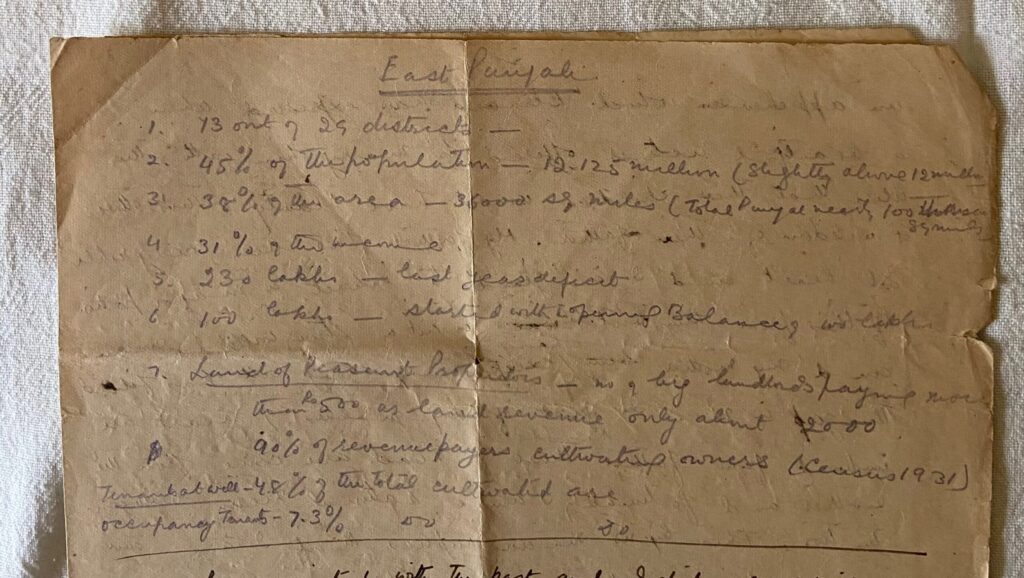 East Punjab
1. 13 out of 29 districts —
2. 45% of the population — 12.125 million (slightly above 12 million
3. 38% of the area — 36000 sq miles (Total Punjab nearly 100 thousand
sq miles
4. 31% of the income
5. 230 lakhs — last year deficit
6 100 lakhs — started with opening Balance of 100 lakhs
7. Land of Peasant Proprietors — no of big landlords paying more
than Rs 500 as land revenue only about 2000
90% of revenue payers cultivating owners (Census 1931)
Tenants at will - 48% of the total cultivated area
occupancy Tenants - 7.3% do do